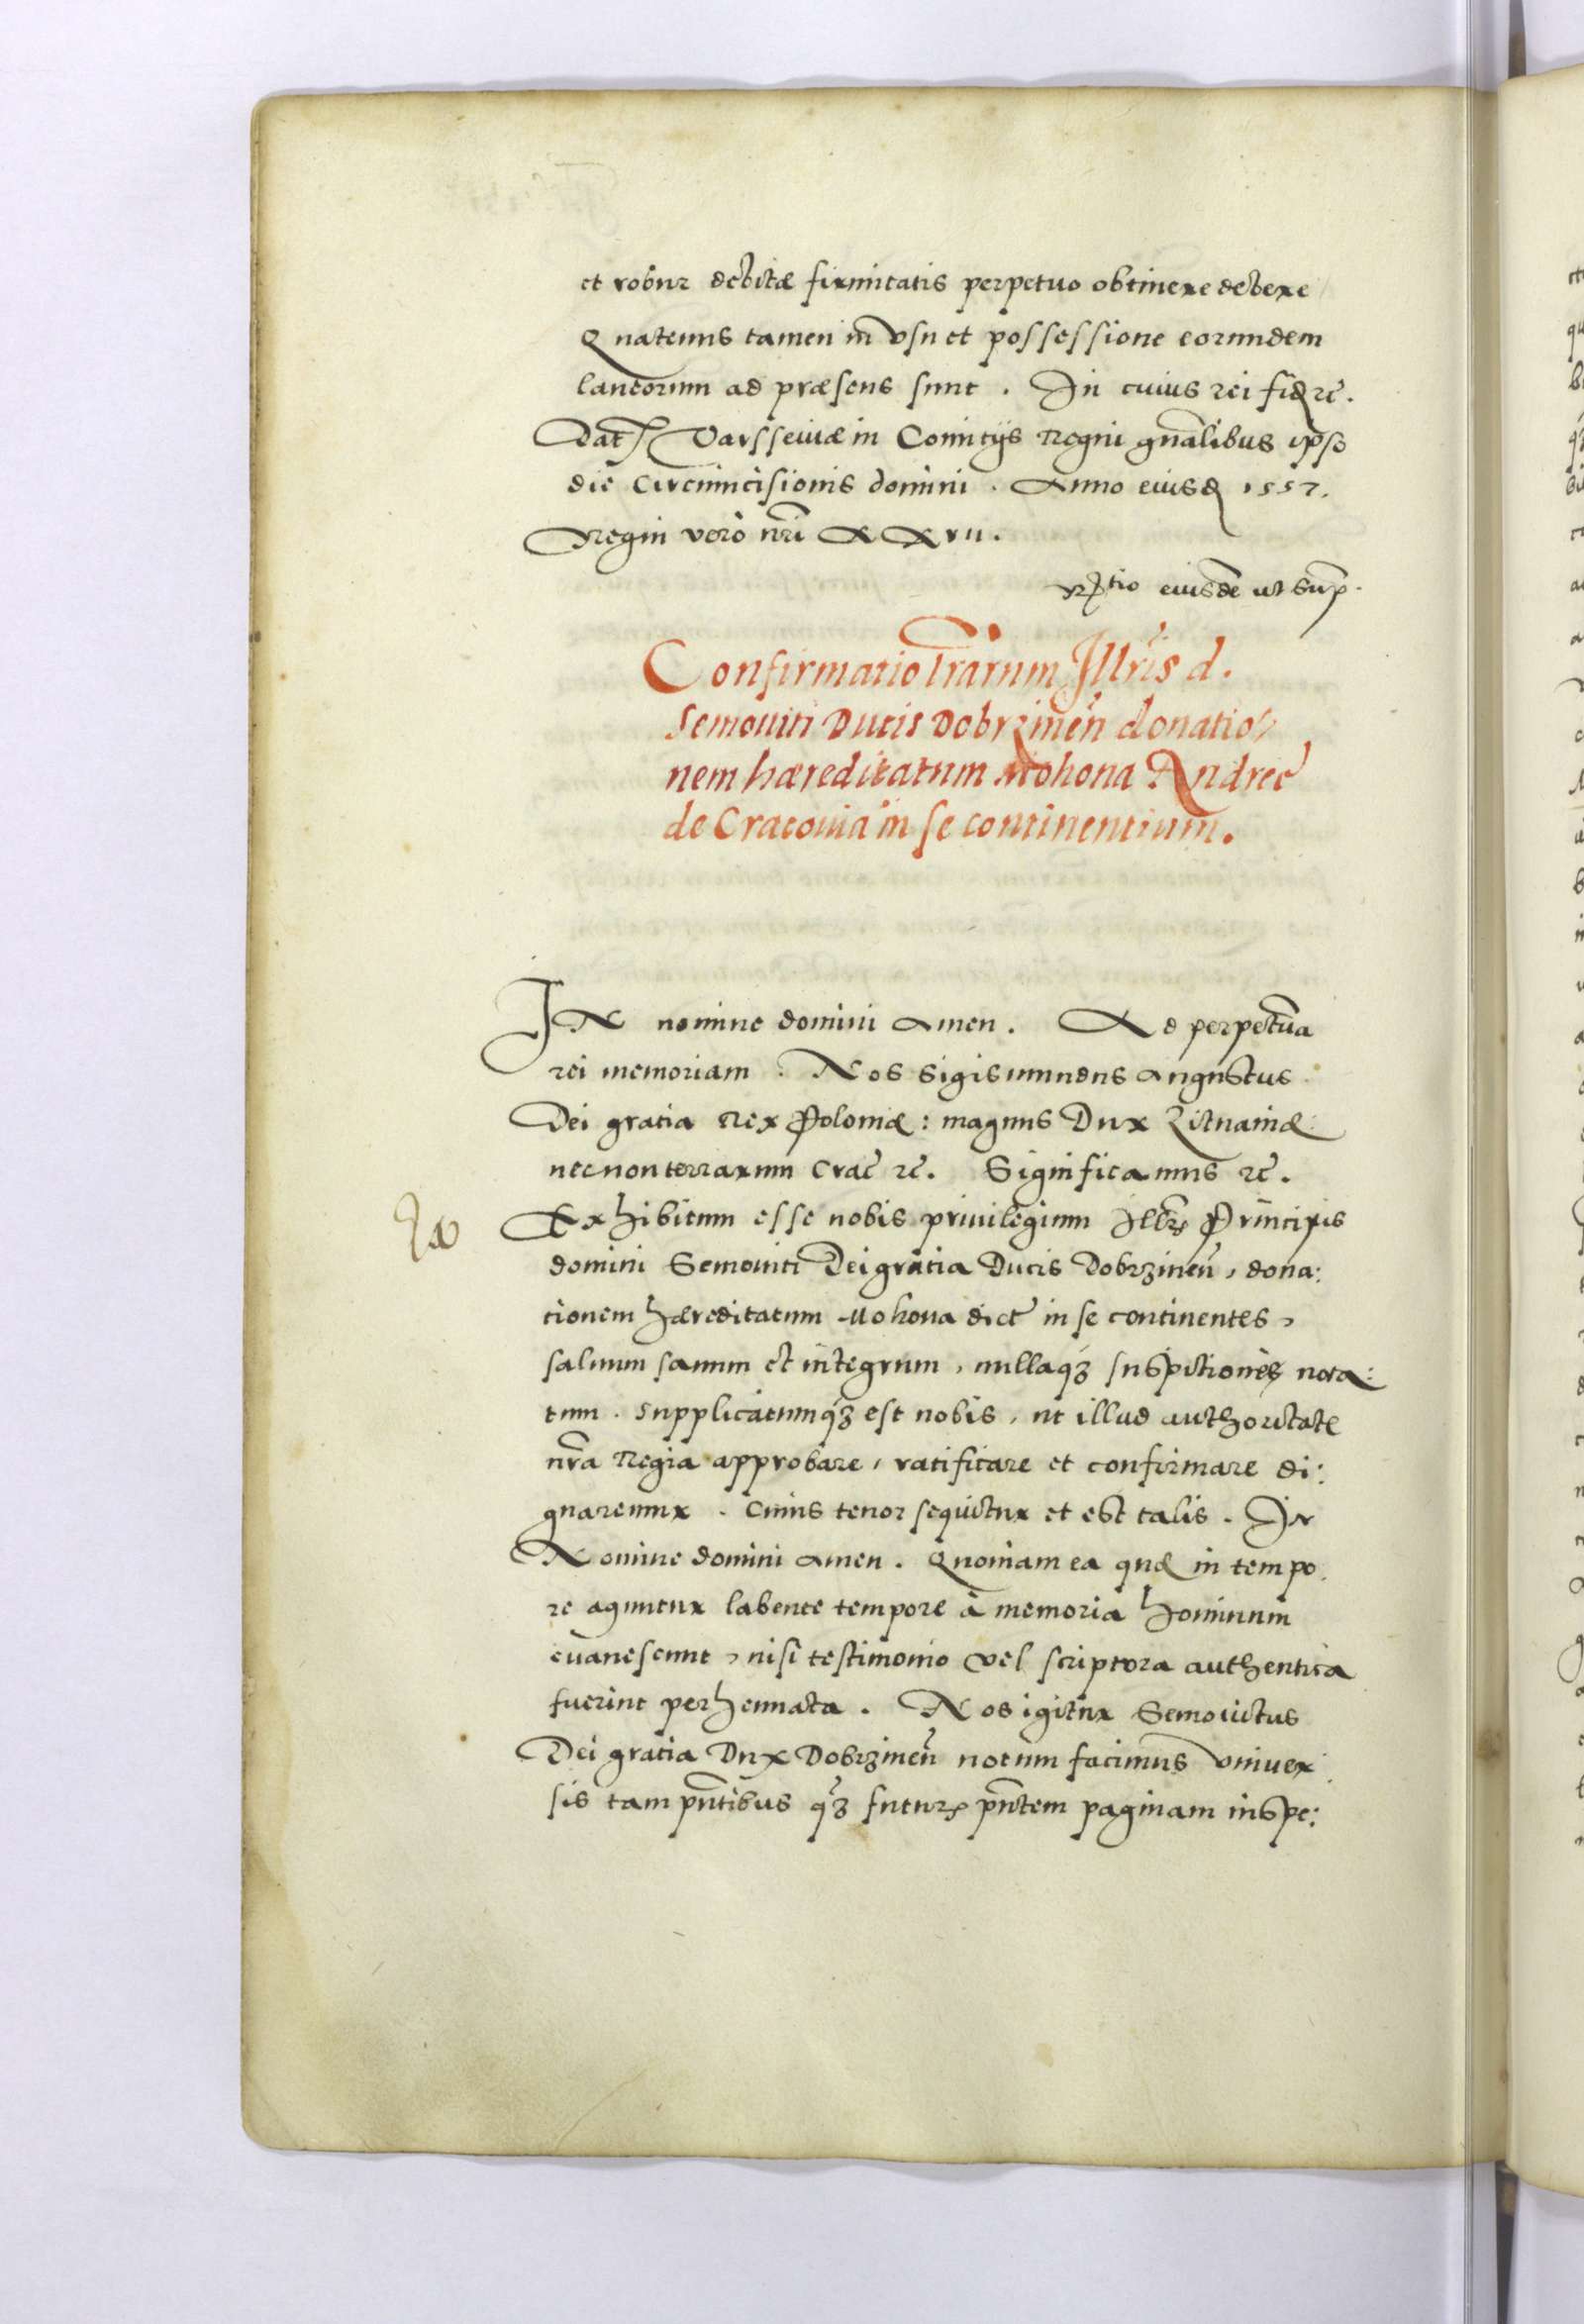 et robur debitæ firmitatis perpetuo obtinere debere
Quatenus tamen in vsu et possessione eorundem
laneorum ad præsens sunt . In cuius rei fidꝫ rc̄.
Dat Varsseuiæ in Comitijs Regni gn̄alibus ipso
die Circumcisionis domini . Anno eiusd 1557.
Regni vero nr̄i XXVII.
R͞tio eiusdē ut sup̄.
Confirmatio l̄rarum Ill̄ris d.
Semouiti Ducis Dobrzineñ donatio
nem hæreditatum Mohona Andree
de Cracouia in se continentium.
IN nomine domini Amen . Ad perpetuā
rei memoriam . Nos Sigismundus Augustus
Dei gratia Rex Poloniæ : magnus Dux Lituaniæ
necnon terrarum Crac̄ rc̄. Significamus rc̄.
Exhibitum esse nobis priuilegium Ill̄ris Principis
domini Semouiti Dei gratia Ducis Dobrzineñ, dona:
tionem hæreditatum Mohona dict in se continentes,
saluum sanum et integrum , nullaqꝫ suspitionis nota:
tum . Supplicatumqꝫ est nobis , ut illud authoritate
nr̄a Regia approbare , ratificare et confirmare di:
gnaremur . Cuius tenor sequitur et est talis . In
Nomine domini Amen . Quoniam ea quæ in tempo
re aguntur labente tempore à memoria hominum
euanescunt , nisi testimonio vel scriptora authentica
fuerint perhennata . Nos igitur Semouitus
Dei gratia Dux Dobrzineñ notum facimus vniuer
sis tam pn̄tibus qꝫ futurꝭ pn̄tem paginam inspe: